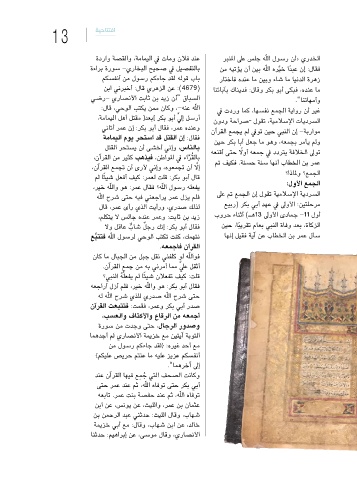 13
الافتتاحية
الخدري، أن رسول الله جلس على المنبر
فقال: إن عبدًا خيّره الله بين أن يؤتيه من
زهرة الدنيا ما شاء وبين ما عنده فاختار
ما عنده، فبكى أبو بكر وقال: فديناك بآبائنا
وأمهاتنا".
غير أن رواية الجمع نفسها، كما وردت في
السرديات الإسلامية، تقول -صراحة ودون
مواربة- إن النبي حين توفي لم يجمع القرآن
ولم يأمر بجمعه، وهو ما جعل أبا بكر حين
تولى الخلافة يتردد في جمعه أولًا حتى أقنعه
عمر بن الخطاب أنها سنة حسنة. فكيف تم
الجمع؟ ولماذا؟
الجمع الأول:
السردية الإسلامية تقول إن الجمع تم على
مرحلتين: الأولى في عهد أبي بكر (ربيع
أول 11– جمادى الأولى 13هـ) أثناء حروب
الزكاة، بعد وفاة النبي بعام تقريبًا، حين
سأل عمر بن الخطاب عن آية فقيل إنها
عند فلان ومات في اليمامة، والقصة واردة
بالتفصيل في صحيح البخاري– سورة براءة
باب قوله لقد جاءكم رسول من أنفسكم
(4679): عن الزهري قال: أخبرني ابن
السباق "أن زيد بن ثابت الأنصاري –رضي
الله عنه-، وكان ممن يكتب الوحي، قال:
أرسل إليَّ أبو بكر [بعدَ] مقتل أهل اليمامة،
وعنده عمر، فقال أبو بكر: إن عمر أتاني
فقال: إن القتل قد استحر يوم اليمامة
بالناس، وإني أخشى أن يستحر القتال
بالقُرَّاء في المواطن، فيذهب كثير من القرآن،
إلَّا أن تجمعوه، وإني لأرى أن تجمع القرآن،
قال أبو بكر: قلت لعمر: كيف أفعل شيئًا لم
يفعله رسول الله؟ فقال عمر: هو والله خير،
فلم يزل عمر يراجعني فيه حتى شرح الله
لذلك صدري، ورأيت الذي رأى عمر، قال
زيد بن ثابت: وعمر عنده جالس لا يتكلم،
فقال أبو بكر: إنك رجلٌ شابٌّ عاقل ولا
نتهمك، كنت تكتب الوحي لرسول الله فتتبَّع
القرآن فاجمعه.
فوالله لو كلفني نقل جبل من الجبال ما كان
أثقل عليَّ مما أمرني به من جمع القرآن،
قلت: كيف تفعلان شيئًا لم يفعلْهُ النبي؟
فقال أبو بكر: هو والله خير، فلم أزل أراجعه
حتى شرح الله صدري للذي شرح الله له
صدر أبي بكر وعمر، فقمت: فتتبعت القرآن
أجمعه من الرقاع والأكتاف والعسب،
وصدور الرجال، حتى وجدت من سورة
التوبة آيتين مع خزيمة الأنصاري لم أجدهما
مع أحد غيره: (لقد جاءكم رسول من
أنفسكم عزيز عليه ما عنتم حريص عليكم)
إلى آخرهما".
وكانت الصحف التي جُمع فيها القرآن عند
أبي بكر حتى توفاه الله، ثم عند عمر حتى
توفاه الله، ثم عند حفصة بنت عمر. تابعه
عثمان بن عمر، والليث، عن يونس، عن ابن
شهاب، وقال الليث: حدثني عبد الرحمن بن
خالد، عن ابن شهاب، وقال: مع أبي خزيمة
الأنصاري، وقال موسى، عن إبراهيم: حدثنا